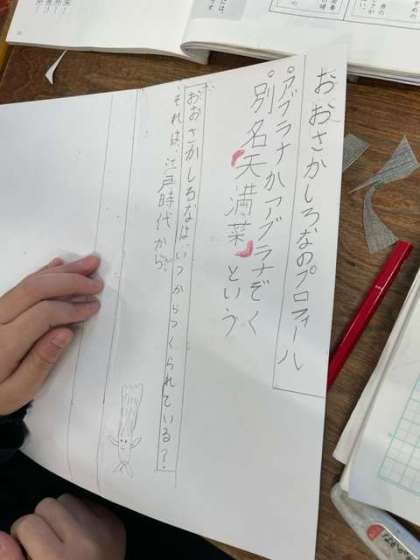 おおさかしろなのプロフィール
°アブラナかアブラナぞく
°別名「天満菜」という
おおさかしろなは、いつからつくられている?
それは、江戸時代から!